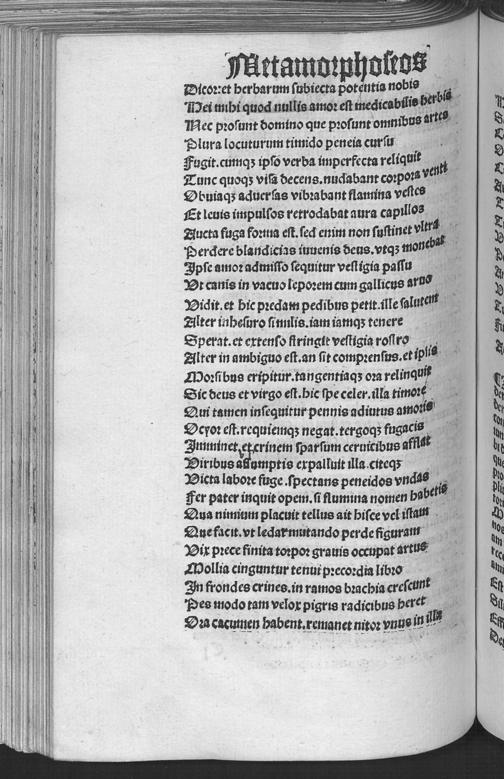 Metamorphoseos
Dicor:et herbarum subiecta potentia nobis
Hei mihi quod nullis amor est medicabilis herbis
Nec prosunt domino que prosunt omnibus artes
Plura locuturum timido peneia cursu
Fugit.cumqꝫ ipso verba imperfecta reliquit
Tunc quoqꝫ visa decens.nudabant corpora venti
Obuiaqꝫ aduersas vibrabant flamina vestes
Et leuis impulsos retrodabat aura capillos
Aucta fuga forma est.sed enim non sustinet vltra
Perdere blandicias iuuenis deus.vtqꝫ monebat
Ipse amor admisso sequitur vestigia passu
Vt canis in vacuo leporem cum gallicus aruo
Vidit.et hic predam pedibus petit.ille salutem
Alter inhesuro similis.iam iamqꝫ tenere
Sperat.et extenso stringit vestigia rostro
Alter in ambiguo est.an sit comprensus.et ipsis
Morsibus eripitur.tangentiaqꝫ ora relinquit
Sic deus et virgo est.hic spe celer.illa timore
Qui tamen insequitur pennis adiutus amoris
Ocyor est.requiemqꝫ negat.tergoqꝫ fugacis
Imminet.et crinem sparsum ceruicibus afflat
Viribus assumptis expalluit illa.citeqꝫ
Victa labore fuge.spectans peneidos vndas
Fer pater inquit opem.si flumina nomen habetis
Qua nimium placuit tellus ait hisce vel istam
Que facit.vt ledar mutando perde figuram
Vix prece finita torpor grauis occupat artus
Mollia cinguntur tenui precordia libro
In frondes crines.in ramos brachia crescunt
Pes modo tam velox pigris radicibus heret
Ora cacumen habent.remanet nitor vnus in illa